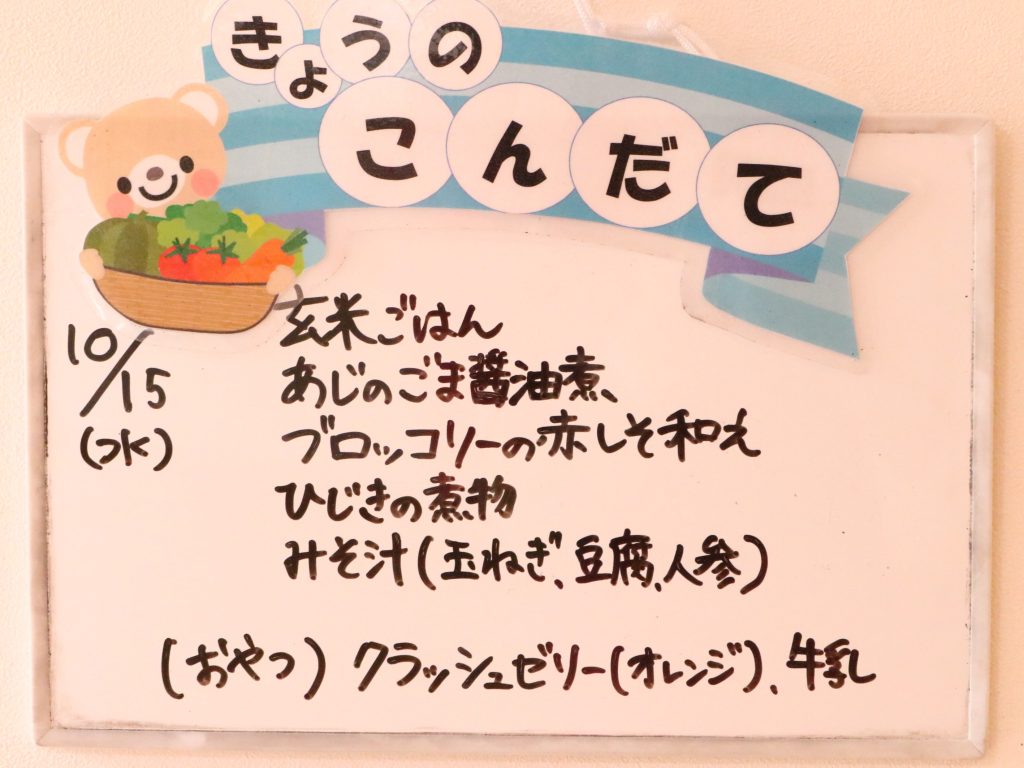 きょうの
こんだて
10/15
(水)
玄米ごはん
あじのごま醤油煮、
ブロッコリーの赤しそ和え
ひじきの煮物
みそ汁(玉ねぎ、豆腐、人参)
(おやつ) クラッシュゼリー(オレンジ)、牛乳